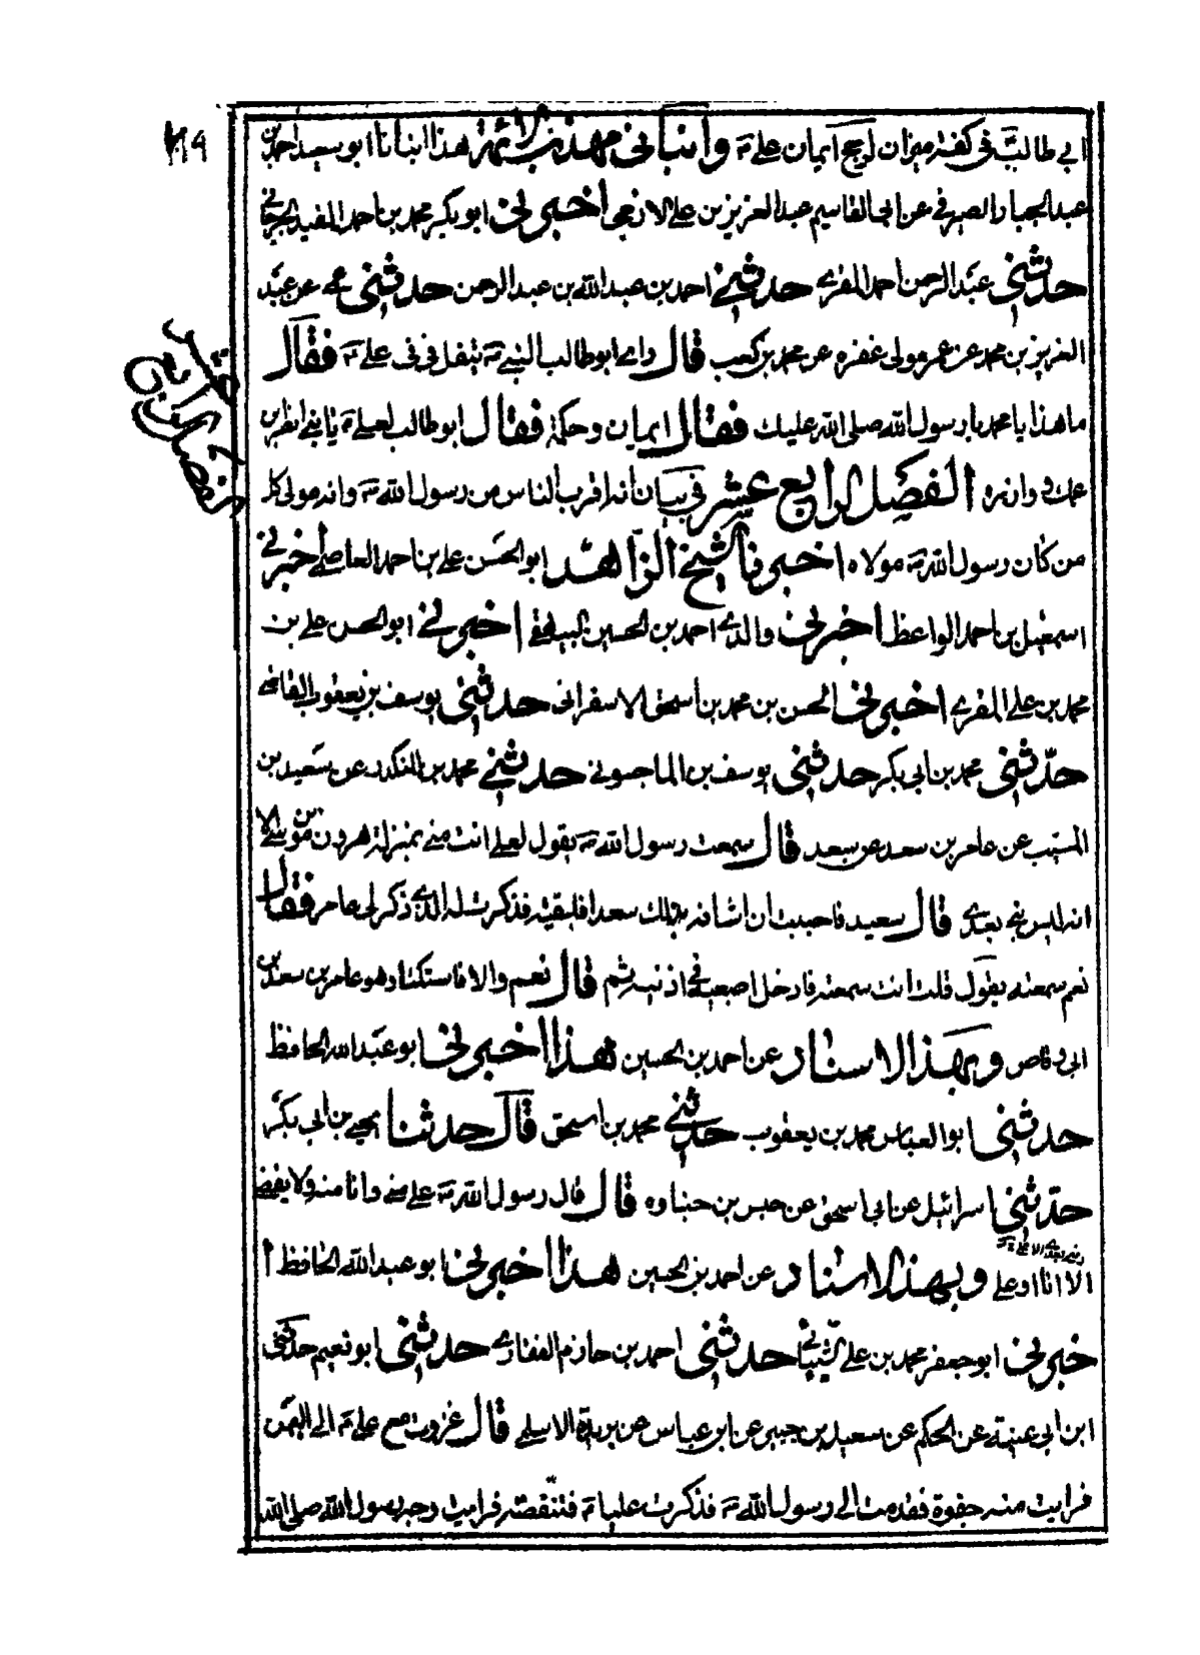 ابي طالب في كفة ميزان لرجح ايمان علي ؑ وانباني مهذب الائمة هذا انبانا ابو سعيد احمد بن
عبد الجبار الصيرفي عن ابي القاسم عبد العزيز بن علي الازجي اخبرني ابو بكر محمد بن احمد المفيد الجرجاني
حدثني عبد الرحمن احمد المقري حدثني احمد بن عبد الله بن عبد الرحمن حدثني عن عبد
العزيز بن محمد عن عمر مولى غفره عن محمد بن كعب قال راي ابو طالب النبي ؐ يتفل في في علي ؑ فقال
ما هذا يا محمد يا رسول الله صلى الله عليك فقال ايمان وحكمة فقال ابو طالب لعلي ؑ يا بني انظر ابن
عمك و وازره الفصل الرابع عشر في بيان انه اقرب الناس من رسول الله ؐ وانه مولى كل
من كان رسول الله ؐ مولاه اخبرنا الشيخ الزاهد ابو الحسن علي بن احمد العاصمي اخبرني
اسمعيل بن احمد الواعظ اخبرني والدي احمد بن الحسين البيهقي اخبرني ابو الحسن علي بن
محمد بن علي المقري اخبرني الحسن بن محمد بن اسحق الاسفرائي حدثني يوسف بن يعقوب القاضي
حدثني محمد بن ابي بكر حدثني يوسف بن الماجسوني حدثني محمد بن المنكدر عن سعيد بن
المسيب عن عامر بن سعد عن سعد قال سمعت رسول الله ؐ يقول لعلي انت مني بمنزلة هرون من موسى الا
انه ليس نبي بعدي قال سعيد فاحببت ان اشافه بذلك سعدا فلقيته فذكرت له الذي ذكر لي عامر فقال
نعم سمعته يقول قلت انت سمعته فادخل اصبعيه في اذنيه ثم قال نعم والا فاستكتا وهو عامر بن سعد بن
ابي وقاص وبهذا الاسناد عن احمد بن الحسين هذا اخبرني ابو عبد الله الحافظ
حدثني ابو العباس محمد بن يعقوب حدثني محمد بن اسحق قال حدثنا يحيى بن ابي بكر
حدثني اسرائيل عن ابي اسحق عن حبس بن حناوه قال قال رسول الله ؐ علي مني وانا منه ولا يقضي
الا انا او علي وبهذا الاسناد عن احمد بن الحسين هذا اخبرني ابو عبد الله الحافظ ا
خبرني ابو جعفر محمد بن علي الشيباني حدثني احمد بن حازم الغفاري حدثني ابو نعيم حدثني
ابن ابي عيينة عن الحكم عن سعيد بن جبير عن ابن عباس عن بريدة الاسلمي قال غزوت مع علي ؑ الى اليمن
فرايت منه جفوة فقدمت الى رسول الله ؐ فذكرت عليا ؑ فتنقصته فرايت وجه رسول الله صلى الله
الفصل الرابع عشر